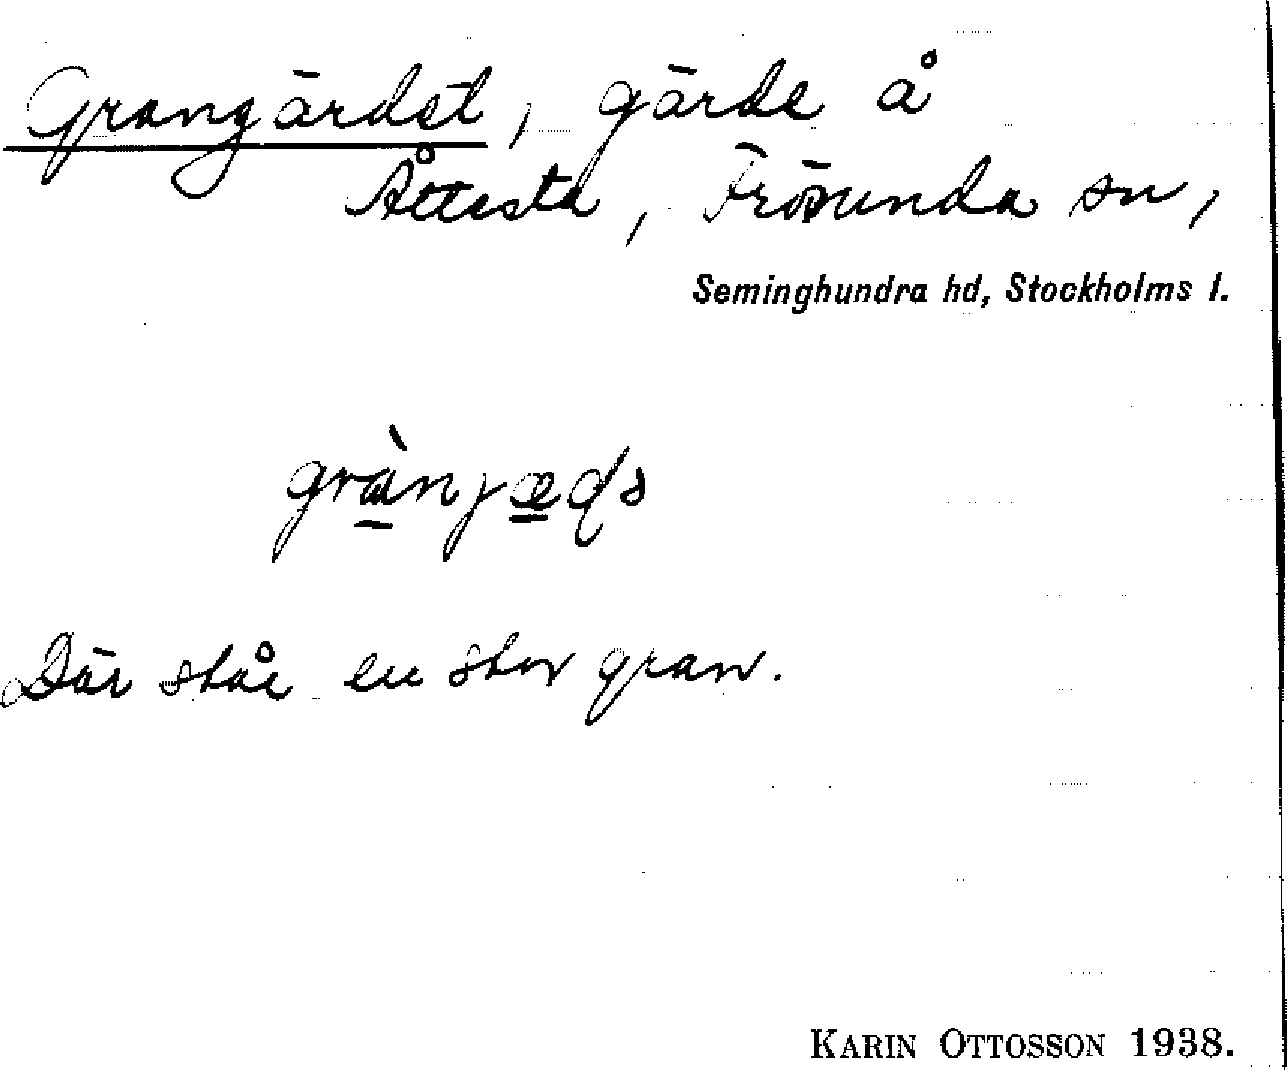 Grangärdet, gärde å
Åttesta, Frösunda sn,
Seminghundra hd, Stockholms l.
Där står en stor gran.
KARIN OTTOSSON 1938.